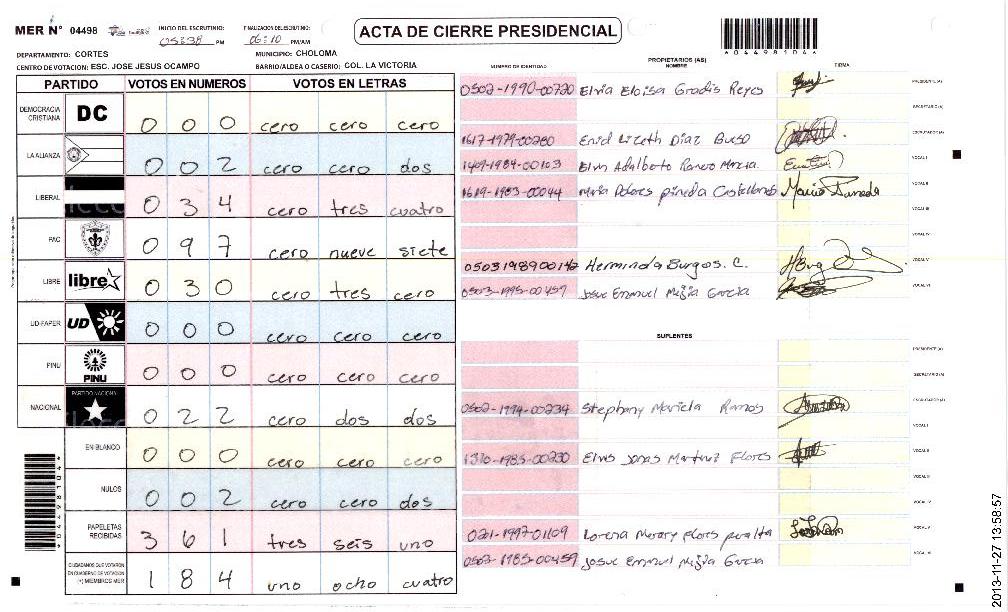 MER N° 04498
INICIO DEL ESCRUTINIO: 05:38 PM
FINALIZACION DEL ESCRUTINIO: 06:10 PM/AM
ACTA DE CIERRE PRESIDENCIAL
0449810 4
DEPARTAMENTO: CORTES
MUNICIPIO: CHOLOMA
CENTRO DE VOTACION: ESC. JOSE JESUS OCAMPO
BARRIO/ALDEA O CASERIO: COL. LA VICTORIA
PARTIDO VOTOS EN NUMEROS VOTOS EN LETRAS
DEMOCRACIA CRISTIANA DC 0 0 0 cero cero cero
LA ALIANZA 0 0 2 cero cero dos
LIBERAL 0 3 4 cero tres cuatro
PAC 0 9 7 cero nueve siete
LIBRE libre 0 3 0 cero tres cero
UD-FAPER UD 0 0 0 cero cero cero
PINU PINU 0 0 0 cero cero cero
NACIONAL PARTIDO NACIONAL 0 2 2 cero dos dos
EN BLANCO 0 0 0 cero cero cero
NULOS 0 0 2 cero cero dos
PAPELETAS RECIBIDAS 3 6 1 tres seis uno
CIUDADANOS QUE VOTARON EN CUADERNO DE VOTACION (+) MIEMBROS MER 1 8 4 uno ocho cuatro
NUMERO DE IDENTIDAD
PROPIETARIOS (AS)
NOMBRE
FIRMA
0502-1990-00720 Elvia Eloisa Gradis Reyes PRESIDENTE (A)
SECRETARIO (A)
1617-1979-00280 Enid Lizeth Diaz Bueso ESCRUTADOR (A)
1409-1984-00103 Elvin Adalberto VOCAL I
1619-1983-00044 Maria Dolores pineda Castellanos VOCAL II
VOCAL III
VOCAL IV
0503198900142 Herminda Burgos. C. VOCAL V
0503-1995-00457 Josue Emmuel Mejia Garcia VOCAL VI
SUPLENTES
PRESIDENTE (A)
SECRETARIO (A)
0502-1994-00234 Stephany Mariela Ramos ESCRUTADOR (A)
VOCAL I
1310-1985-00230 Elvis Jonas Martinez Flores VOCAL II
VOCAL III
VOCAL IV
Lorena Flores peralta VOCAL V
Josue Emmuel Mejia Garcia VOCAL VI
2013-11-27 13:58:57